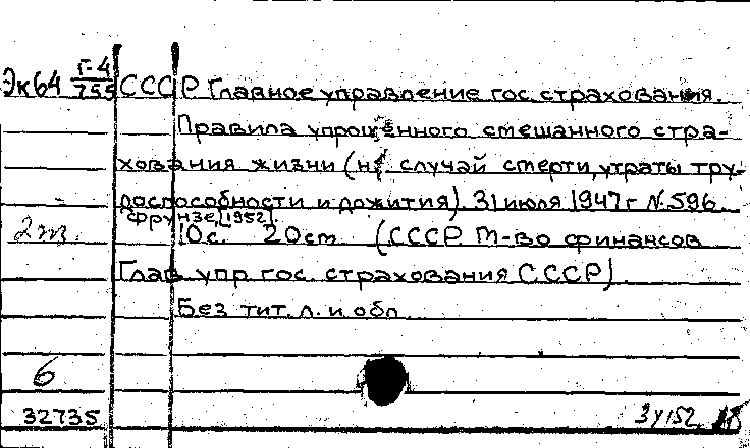 Эк64 Г-4/755 СССР Главное управление гос. страхования.
Правила упрощённого смешанного стра-
хования жизни (на случай смерти, утраты тру-
доспособности и дожития) 31 июля 1947 г N 596.
Фрунзе, [1952].
2 эт. 10с. 20см (СССР М-во финансов
Глав упр. гос. страхования СССР)
Без тит. л. и обл.
6
32735